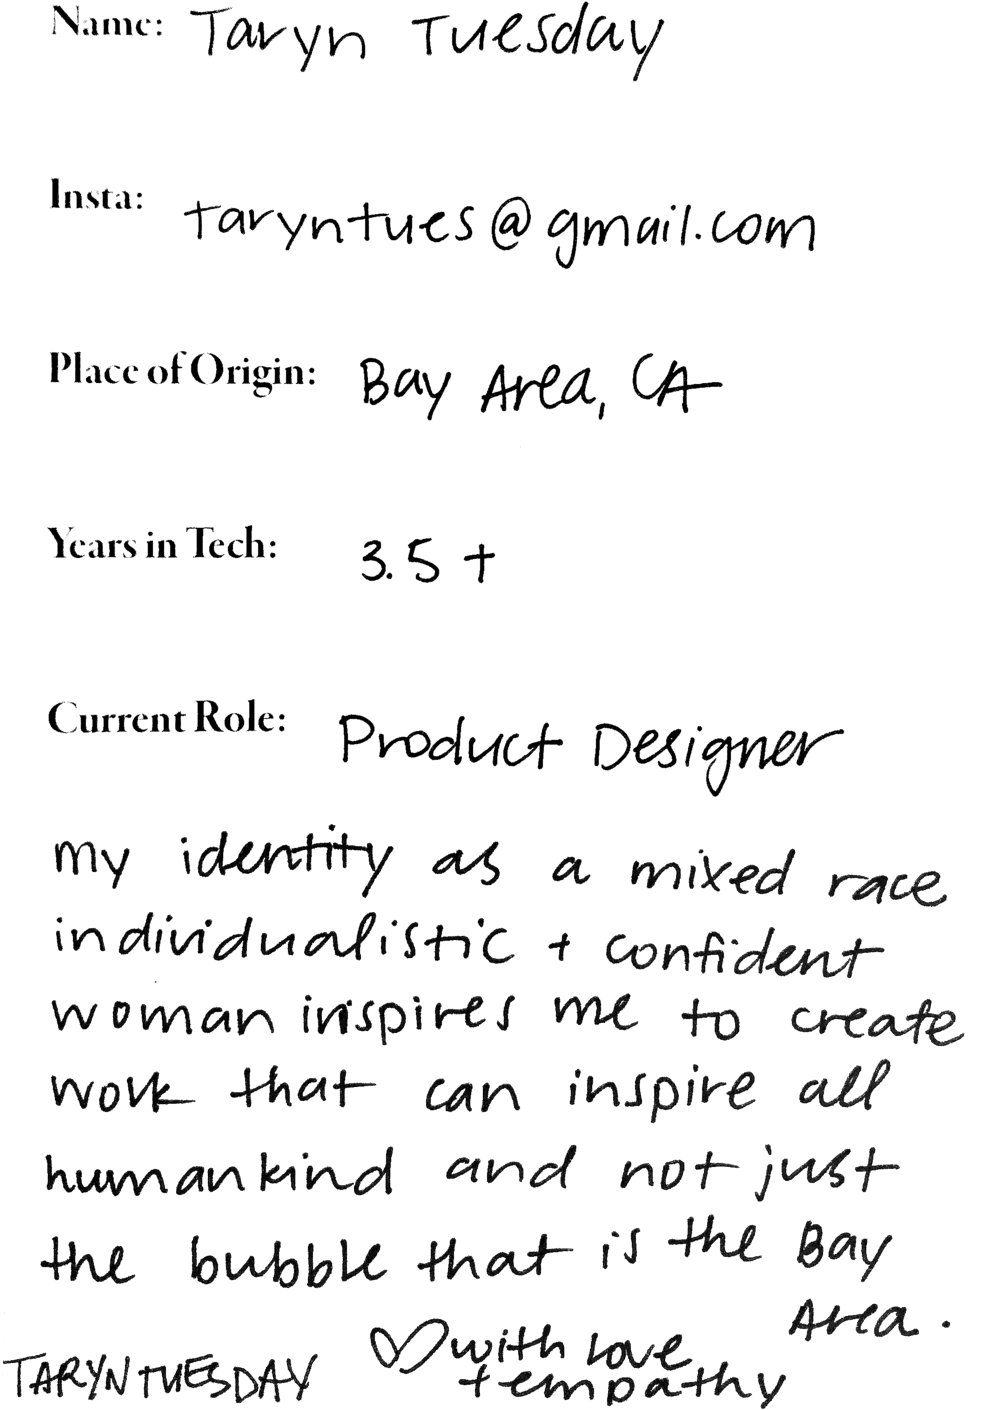 Name: Taryn Tuesday
Insta: taryntues@gmail.com
Place of Origin: Bay Area, CA
Years in Tech: 3.5+
Current Role: Product Designer
my identity as a mixed race
individualistic + confident
woman inspires me to create
work that can inspire all
humankind and not just
the bubble that is the Bay
Area.
♡ with love
+ empathy
TARYN TUESDAY